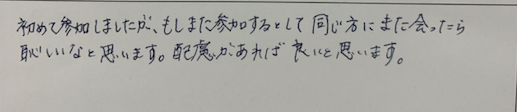 初めて参加しましたが、もしまた参加するとして同じ方にまた会ったら
恥しいなと思います。配慮があれば良いと思います。